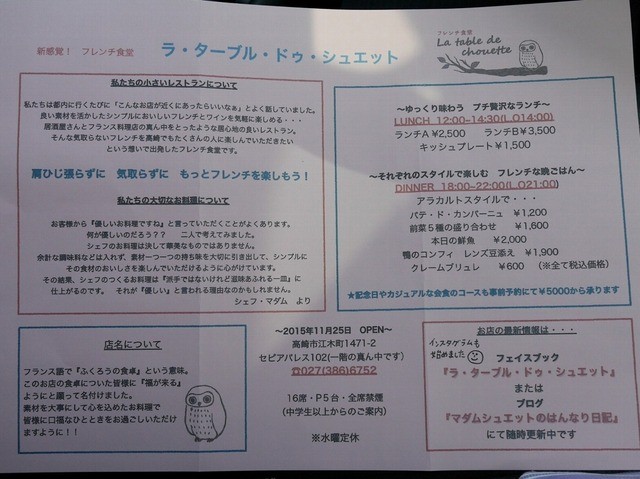 新感覚! フレンチ食堂
ラ・ターブル・ドゥ・シュエット
フレンチ食堂
La table de
chouette
私たちの小さいレストランについて
私たちは都内に行くたびに「こんなお店が近くにあったらいいなぁ」とよく話していました。
良い素材を活かしたシンプルにおいしいフレンチとワインを気軽に楽しめる・・・
居酒屋さんとフランス料理店の真ん中をとったような居心地の良いレストラン。
そんな気取らないフレンチを高崎でもたくさんの人に楽しんでいただきたい
という想いで出発したフレンチ食堂です。
肩ひじ張らずに 気取らずに もっとフレンチを楽しもう!
私たちの大切なお料理について
お客様から『優しいお料理ですね』と言っていただくことがよくあります。
何が優しいのだろう?? 二人で考えてみました。
シェフのお料理は決して華美なものではありません。
余計な調味料などは入れず、素材一つ一つの持ち味を大切に引き出して、シンプルに
その食材のおいしさを楽しんでいただけるように心がけています。
その結果、シェフのつくるお料理は『派手ではないけれど滋味あふれる一皿』に
仕上がるのです。 それが『優しい』と言われる理由なのかもしれません。
シェフ・マダム より
〜ゆっくり味わう プチ贅沢なランチ〜
LUNCH 12:00~14:30(L.O14:00)
ランチA ¥2,500 ランチB ¥3,500
キッシュプレート ¥1,500
〜それぞれのスタイルで楽しむ フレンチな晩ごはん〜
DINNER 18:00~22:00(L.O21:00)
アラカルトスタイルで・・・
パテ・ド・カンパーニュ ¥1,200
前菜5種の盛り合わせ ¥1,600
本日の鮮魚 ¥2,000
鴨のコンフィ レンズ豆添え ¥1,900
クレームブリュレ ¥600 (※全て税込価格)
★記念日やカジュアルな会食のコースも事前予約にて¥5000から承ります
店名について
フランス語で『ふくろうの食卓』という意味。
このお店の食卓についた皆様に『福が来る』
ようにと願って名付けました。
素材を大事にして心を込めたお料理で
皆様に口福なひとときをお過ごしいただけ
ますように!!
〜2015年11月25日 OPEN〜
高崎市江木町1471-2
セピアパレス102(一階の真ん中です)
☎027(386)6752
16席・P5台・全席禁煙
(中学生以上からのご案内)
※水曜定休
お店の最新情報は・・・
インスタグラムも
始めました
フェイスブック
『ラ・ターブル・ドゥ・シュエット』
または
ブログ
『マダムシュエットのはんなり日記』
にて随時更新中です